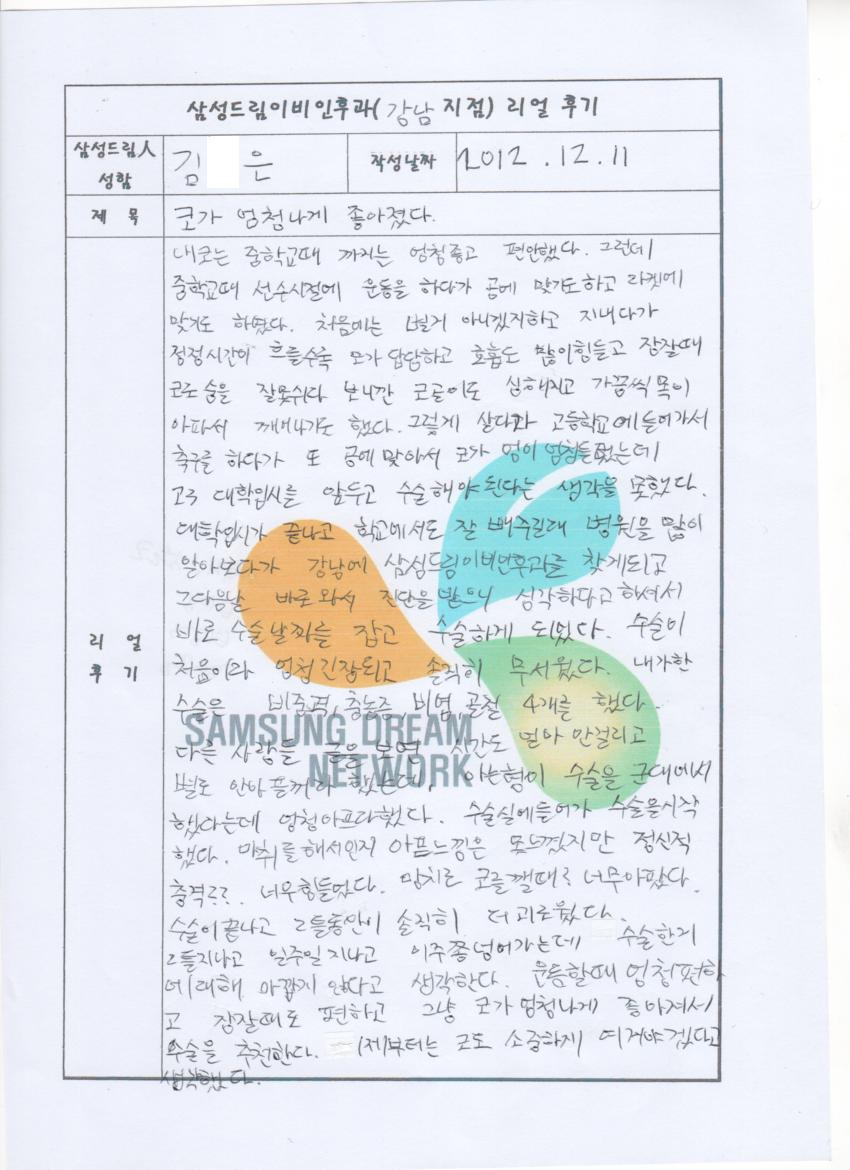 삼성드림이비인후과(강남 지점) 리얼 후기
삼성드림人 성함
김 은
작성날짜
2012.12.11
제 목
코가 엄청나게 좋아졌다.
리 얼 후 기
내코는 중학교때 까지는 엄청좋고 편안했다. 그런데
중학교때 선수시절에 운동을 하다가 공에 맞기도하고 라켓에
맞기도 하였다. 처음에는 별거 아니겠지하고 지내다가
점점시간이 흐를수록 코가 답답하고 호흡도 많이힘들고 잠잘때
코로 숨을 잘못쉬다 보니깐 코골이도 심해지고 가끔씩 목이
아파서 깨어나기도 했다. 그렇게 살다가 고등학교에들어가서
축구를 하다가 또 공에 맞아서 코가 엄청
고3 대학입시를 앞두고 수술해야된다는 생각을 못했다.
대학입시가 끝나고 학교에서도 잘 빼주길래 병원을 많이
알아보다가 강남에 삼성드림이비인후과를 찾게되고
그다음날 바로와서 진단을 받으니 심각하다고 하셔서
바로 수술날짜를 잡고 수술하게 되었다. 수술이
처음이라 엄청긴장되고 솔직히 무서웠다. 내가한
수술은 비중격, 축농증, 비염, 골절 4개를 했다.
다른 사람들 글을 보면 시간도 얼마 안걸리고
별로 안아플꺼라 했는데, 아는형이 수술을 군대에서
했다는데 엄청아프다했다. 수술실에들어가 수술을시작
했다. 마취를해서인지 아픈느낌은 못느꼈지만 정신적
충격?? 너무힘들었다. 망치로 코를깰때? 너무아팠다.
수술이끝나고 2틀동안이 솔직히 더 괴로웠다.
2틀지나고 일주일지나고 이주쯤넘어가는데 수술한거
에대해 아깝지 않다고 생각한다. 운동할때 엄청편하
고 잠잘때도 편하고 그냥 코가엄청나게 좋아져서
수술을 추천한다. 이제부터는 코도 소중하게 여겨야겠다고
생각했다.
SAMSUNG DREAM
NETWORK